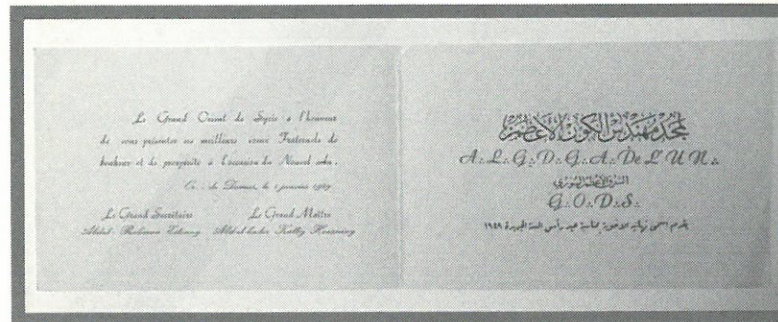 Le Grand Orient de Syrie a l'honneur
de vous présenter ses meilleurs voeux Fraternels de
bonheur et de prospérité à l'occasion du Nouvel
Or∴ de Damas, le 1 janvier 1949
Le Grand Secrétaire Le Grand Maître
Abdul-Rahman Abd-el-Kader
لمجد مهندس الكون الأعظم
A∴L∴G∴D∴G∴A∴De L'UN∴
الشرق الأعظم السوري
G∴O∴D∴S∴
يقدم أسمى تهانيه الاخوية بمناسبة عيد رأس السنة الجديدة ١٩٤٩